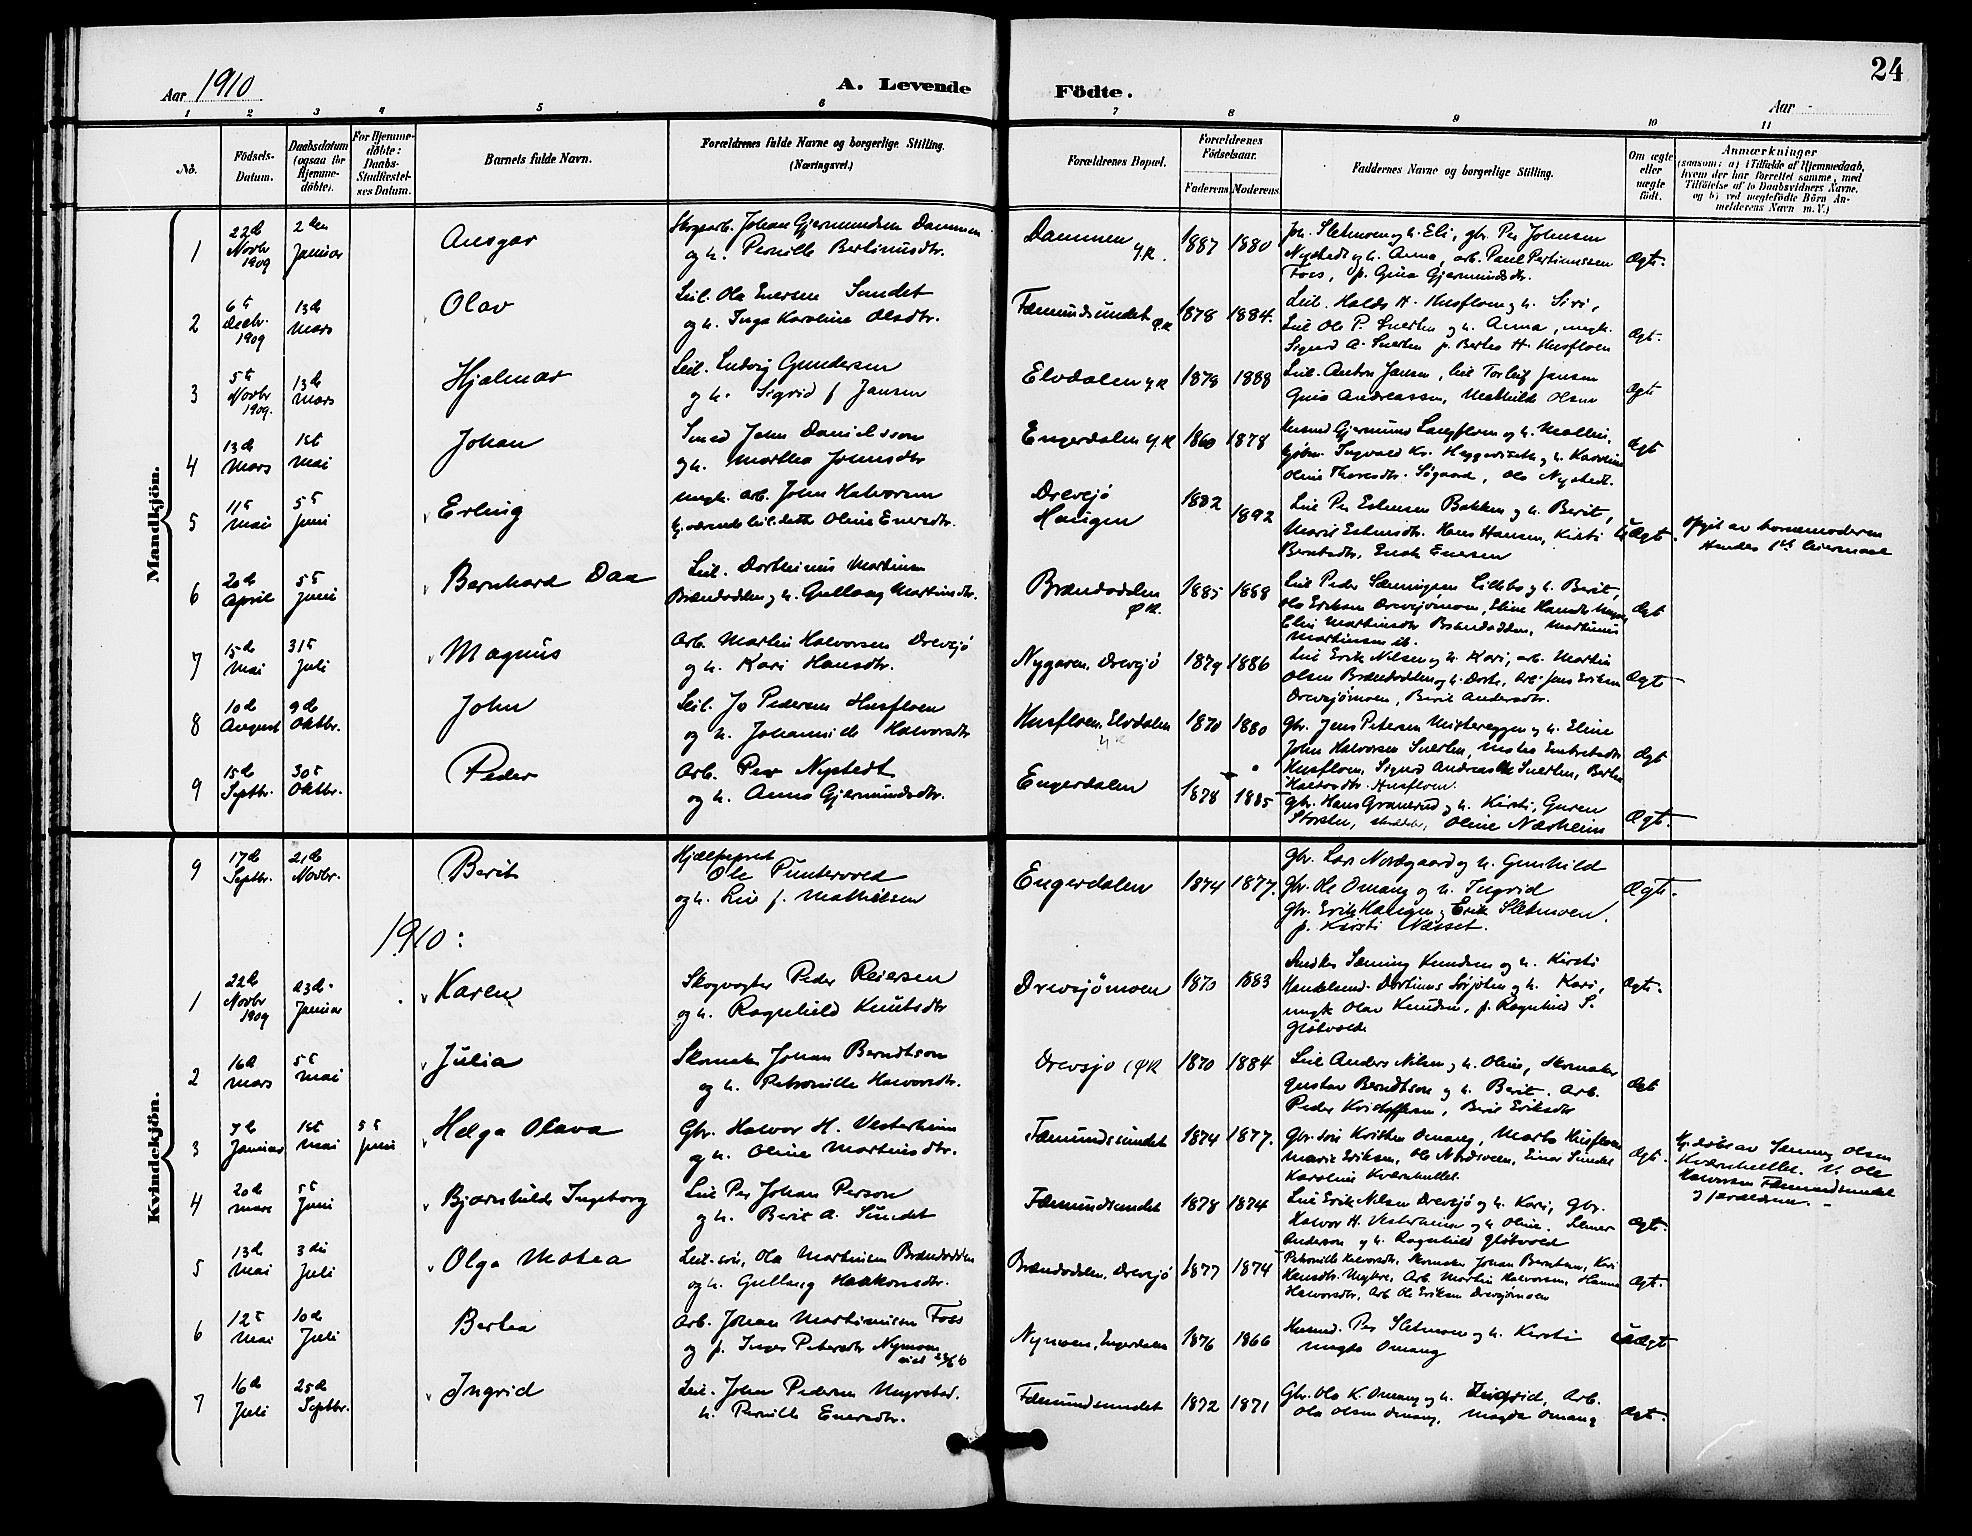 24
Aar 1910
A. Levende
Födte.
Aar
1 2 3 4 5 6 7 8 9 10 11
No.
Födsels-
Datum.
Daabsdatum
(ogsaa for
Hjemme-
döbte).
For Hjemme-
döbte:
Daabs-
Stadfæstel-
ses Datum.
Barnets fulde Navn.
Forældrenes fulde Navne og borgerlige Stilling.
(Næringsvei.)
Forældrenes Bopæl.
Forældrenes
Födselsaar.
Faderens Moderens
Faddernes Navne og borgerlige Stilling.
Om ægte
eller
uægte
födt.
Anmærkninger
(saasom: a) i Tilfælde af Hjemmedaab,
hvem der har forrettet samme, med
Tilföielse af to Daabsvidners Navne,
og b) ved uegtefödte Börn An-
melderens Navn m. V.)
Mandkjön.
1
22d
Novbr
1909
2den
Januar
Ansgar
Skogarb. Johan Gjermundsen Dammen
og h. Pernille Bertinusdtr.
Dammen
1887 1880
Joh. Sletmoen og h. Eli, gbr. Per Johnsen
Nystedt og h. Anna, arb. Paul Pertinussen
Foss, p. Gina Gjermundsdtr.
Ægt.
2
6t
Decbr.
1909
13d
Mars
Olav
Leil. Ola Enersen Sundet
og h. Inga Karoline Olsdtr.
Fæmundsundet
1878 1884.
Leil. Halds H. Husfloen og h. Siri,
Leil Ole P. Snerten og h. Anna, ungk.
Sigurd A. Snerten p. Bertea H. Husfloen
Ægt.
3
5t
Novbr
1909.
13d
Mars
Hjalmar
Leil. Ludvig Gundersen
og h. Sigrid f. Jansen
Elvdalen
1879 1888
Leil. Anton Jansen, leil Torleif Jansen
Gina Andreassen, Mathilde Olsen
Ægt
4
13d
Mars
1st
Mai
Johan
Smed John Danielsson
og h. Marthea Johnsdtr
Engerdalen
1860 1878
Husmd Gjermund Langfloen og h. Mallin,
Ingvald Kr. Heggeriseth og h. Karoline
Oline Thoresdtr. Søgaard, Ole Nystedt.
Ægt
5
11t
Mai
5t
Juni
Erling
Ungk. arb. John Halvorsen
Oline Enersdtr.
Drevsjø
Haugen
1882
1892
Leil Per Estensen Bakken og h. Berit,
Marit Estensdtr. Hans Hansen, Kirsti
Berntsdtr, Enok Enersen
Uægt.
Opgit av barnemoderen
Hendes 1st leiermaal
6
20d
April
5t
Juni
Bernhard Daa
Leil. Dorthinus Martinsen
Brændodden og h. Gullaug Martinsdtr.
Brændodden
1885 1888
Leil Peder Sæmingsen Lillebo og h. Berit,
Ola Eriksen Drevsjømoen, Eline Hansdtr
Elen Martinsdtr Brændodden, Martinus
Martinsen ib.
Ægt
7
15d
Mai
31t
Juli
Magnus
Arb. Martin Halvorsen Drevsjø
og h. Kari Hansdtr.
Nygaren, Drevsjø
1879 1886
Leil Erik Nilsen og h. Kari, arb. Martin
Olsen Brændodden og h. Dorte, Arb. Jens Eriksen
Drevsjømoen, Berit Andersdtr.
Ægt
8
10d
August
9d
Oktbr.
John
Leil. Jo Pedersen Husfloen
og h. Johannide Halvorsdtr
Husfloen, Elvdalen
1870 1880
Gbr. Jens Petersen Misteræggen og h. Eline
John Halvorsen Snerten, Embretsdtr
Husfloen, Sigurd Andreassen Snerten, Bertea
Halvorsdtr. Husfloen.
Ægt
9
15d
Septbr.
30t
Oktbr.
Peder
Arb. Per Nystedt
og h. Anna Gjermundsdtr.
Engerdalen
1878 1885
Gbr. Hans Granerud og h. Kirsti, Guren
Storsten, Oline Næsheim
Ægt.
Kvindekjön.
9
17d
Septbr.
21d
Novbr.
Berit
Hjælpeprest
Ole Puntervold
og h. Live f. Mathiesen
Engerdalen
1874 1877.
Gbr. Lars Nordgaard og h. Gunhild
Gbr. Ole Omang og h. Ingrid
Gbr. Erik Haugen, Erik Sletmoen,
p. Kirsti Næsset.
Ægte.
1910:
1
22d
Novbr
1909
23d
Januar
Karen
Skogvogter Peder Reiersen
og h. Ragnhild Knutsdtr
Drevsjømoen
1870 1883
Sæming Knudsen og h. Kirsti
Handelsmd. Dortinus Sørjoten og h. Kari,
ungk Olav Knudsen, p. Ragnhild S.
Gløtvold.
Ægt.
2
16d
Mars
5t
Mai
Julia
Skomak. Johan Berndtson
og h. Petronille Halvorsdtr.
Drevsjø
1870 1884
Leil Anders Nilsen og h. Oline, Skomaker
Gustav Berndtson og h. Berit. Arb.
Peder Kristoffersen, Berit Eriksdtr
Ægt
3
7d
Januar
1st
Mai
5t
Juni
Helga Olava
Gbr. Halvor H. Vesterheim
og h. Oline Martinsdtr.
Fæmundssundet
1874 1877.
Gbr. søn Kristen Omang, Marta Husfloen
Marie Eriksen, Ole Nordsveen, Einar Sundet
Karoline Kværnhullet.
Ægt.
Hj. døbt av Sæming Olsen
Kværnhullet. V. Ole
Halvorsen Fæmundsundet
og forældrene.
4
20d
Mars
5t
Juni
Bjørnhild Ingeborg
Leil Per Johan Person
og h. Berit A. Sundet
Fæmundsundet
1878 1874
Leil Erik Nilsen Drevsjø og h. Kari, Gbr.
Halvor H. Vesterheim og h. Oline. Elmer
Anderson og h. Ragnhild Gløtvold
Ægt.
5
13d
Mai
3die
Juli
Olga Matea
Leil-søn, Ola Martinsen Brændodden
og h. Gullaug Haakonsdtr.
Brændodden, Drevsjø
1877 1874
Petronille Halvorsdtr, Skomaker Johan Berntsen, Kari
Hansdtr. Myhre, Arb. Martin Halvorsen, Hanna
Halvorsdtr, Arb Ole Eriksen Drevsjømoen
Ægt.
6
12t
Mai
10d
Juli
Bertea
Arb. Johan Martinusen Foss
og p. Inga Petersdtr Nymoen
Nymoen, Engerdalen
1876 1866
Husmd. Per Sletmoen og h. Kirsti
Magda Omang
Uægt
7
16d
Juli
25d
Septbr.
Ingrid
Leil. Johan Pedersen Myrstad.
h. Pernille Enersdtr.
Fæmundsundet
1872 1871
Gbr. Ola K. Omang og h. Ingrid, Arb.
Ola Olsen Omang, Magda Omang
Ægt.